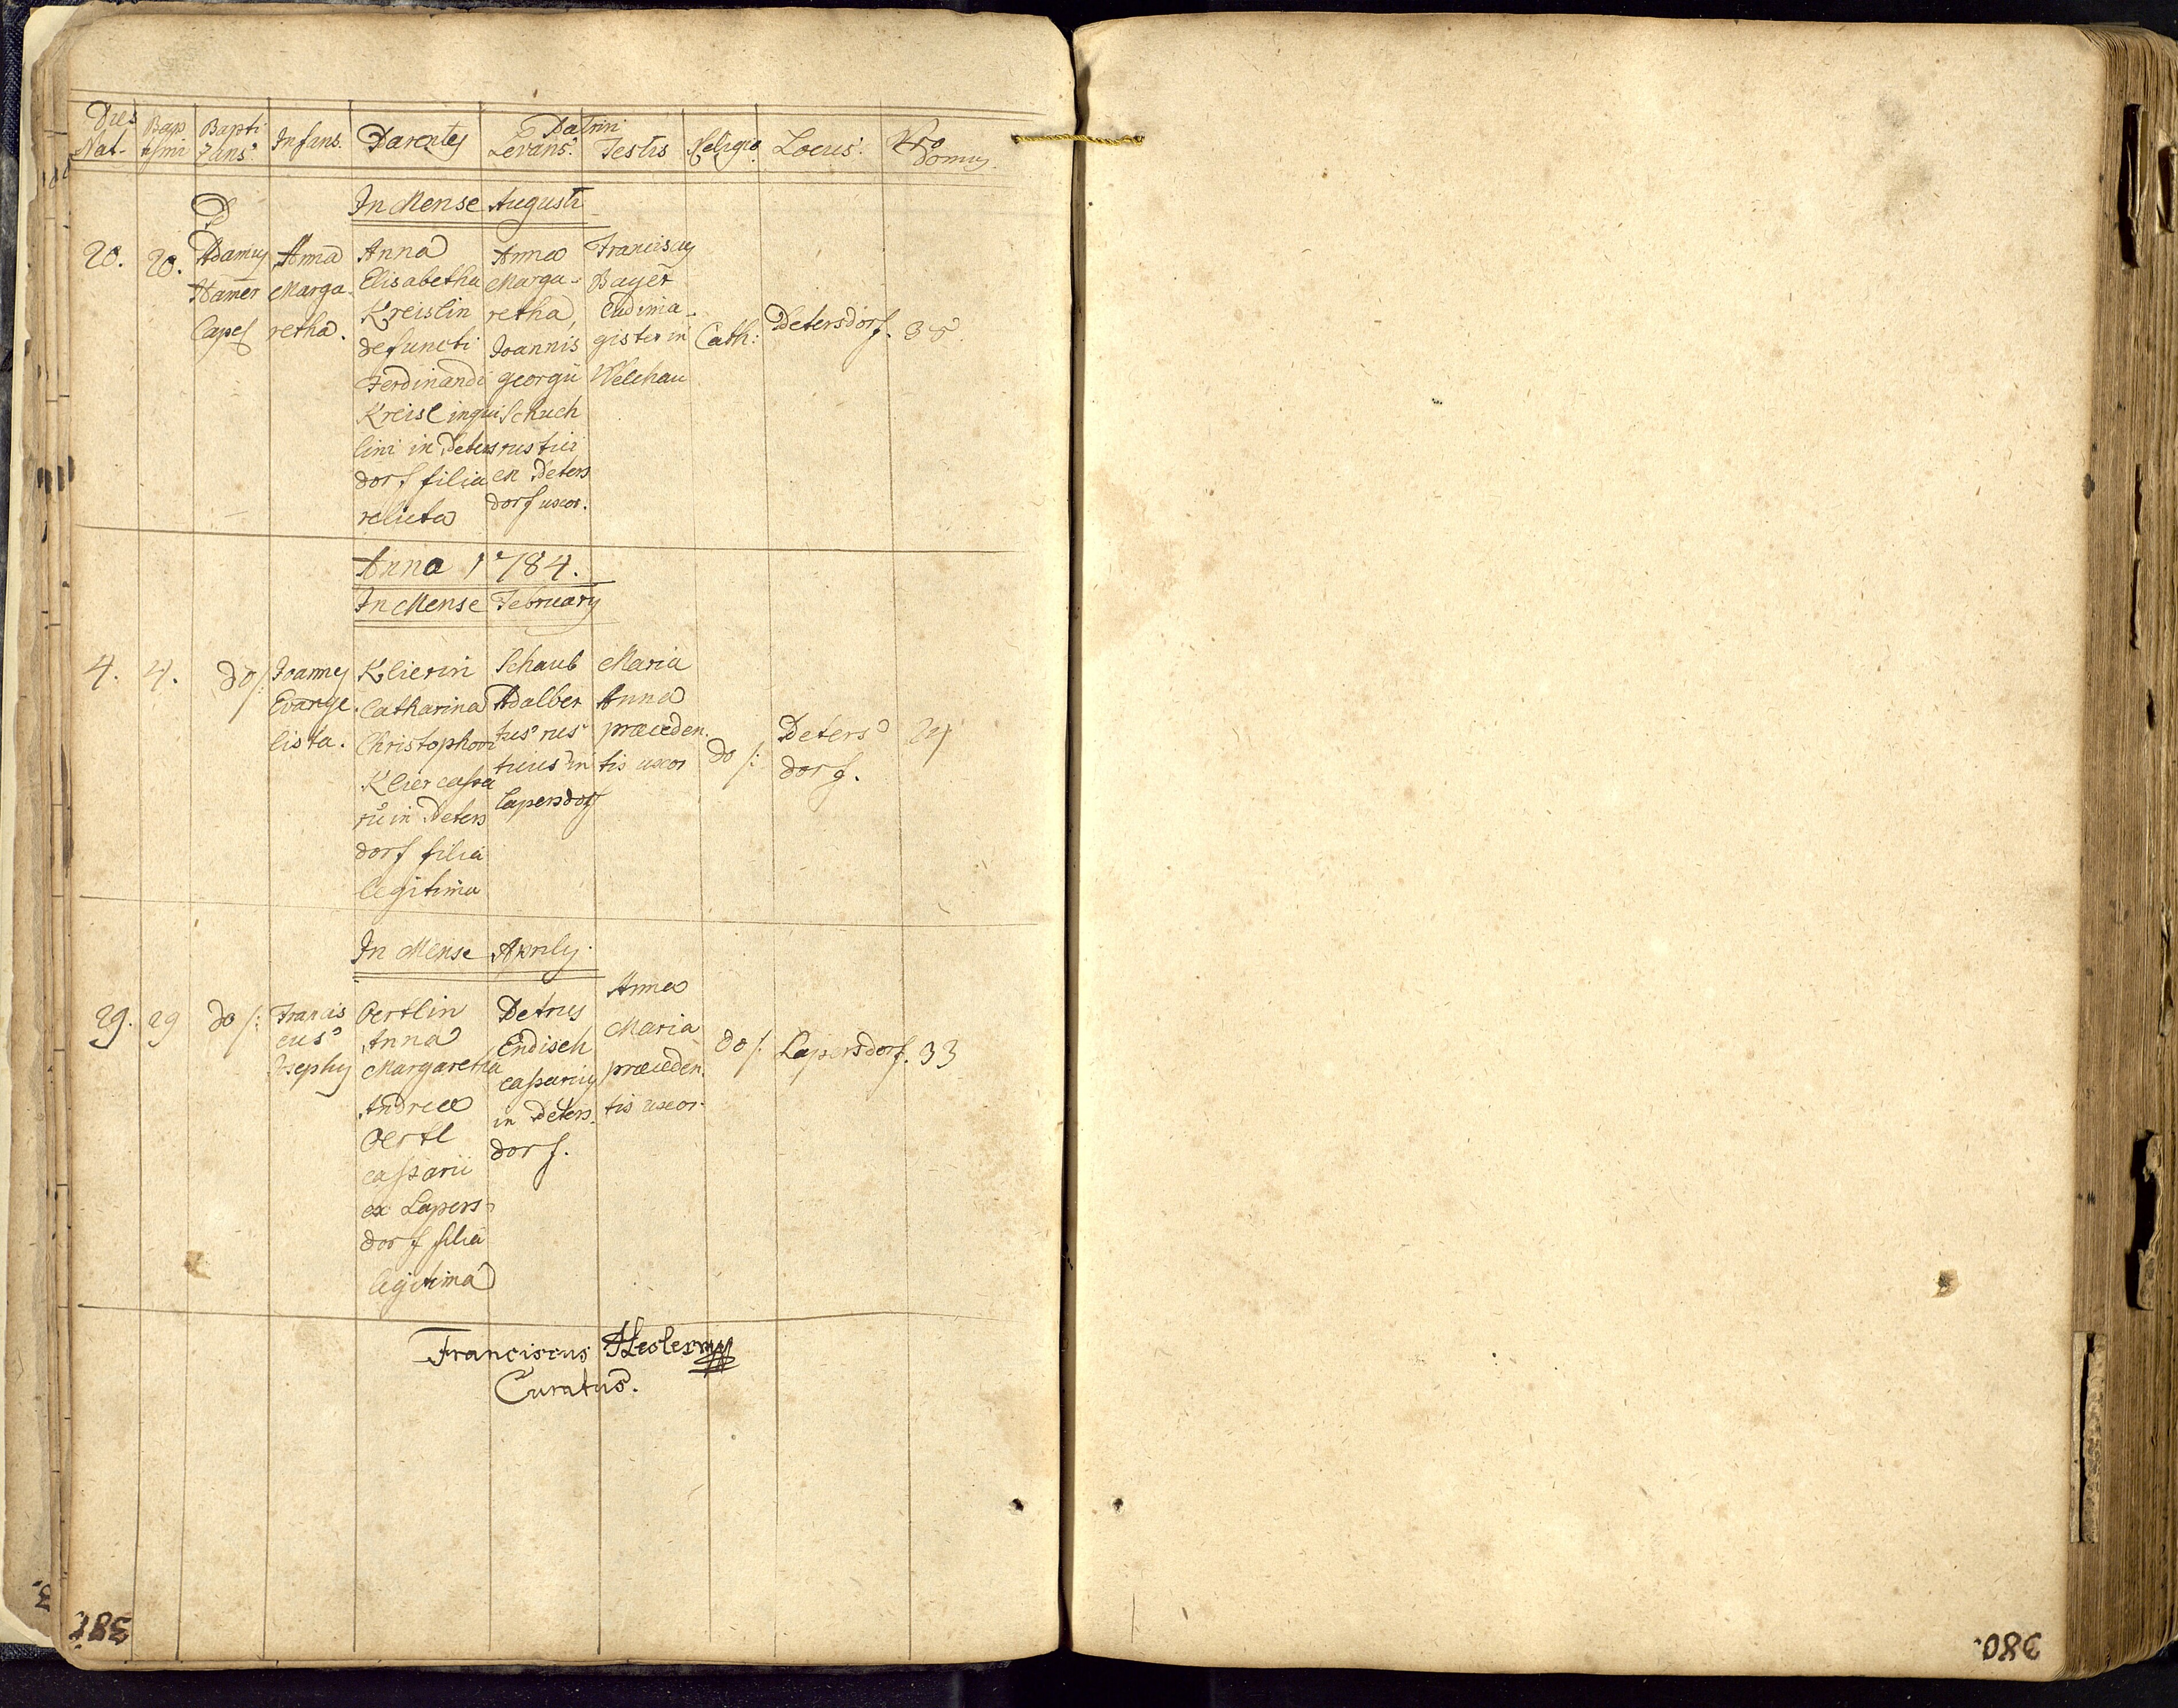 Dies Nat. Bap tismi Bapti zans Infans. Parentes Patrini Levans Testis Religio Locus Nro Domus
In Mense Augusti
20. 20. P Adamus Hamer Capel Anna Marga retha. Anna Elisabetha Kreislin defuncti Ferdinandi Kreisl inqui lini in Peters dorf filia relicta Anna Marga retha, Joannis georgii Schuch rustici ex Peters dorf uxor. Franciscus Bayer Ludima gister in Welchau Cath: Petersdorf. 35.
Anno 1784.
In Mense February
4. 4. do/: Joannes Evange lista. Klierin Catharina Christophori Klier cassa rii in Peters dorf filia legitima Schaub Adalber tus rus ticus in Lapersdorf Maria Anna præceden tis uxor do/: Peters dorf. 24
In Mense Aprily.
29. 29 do/: Francis cus Josephus Oertlin Anna Margaretha Andreæ Oertl cassarii ex Lapers dorf filia legitima Petrus Endisch cassarius in Peters dorf. Anna Maria præceden tis uxor do/: Lapersdorf. 33
Franciscus Hesler mp
Curatus.
380.